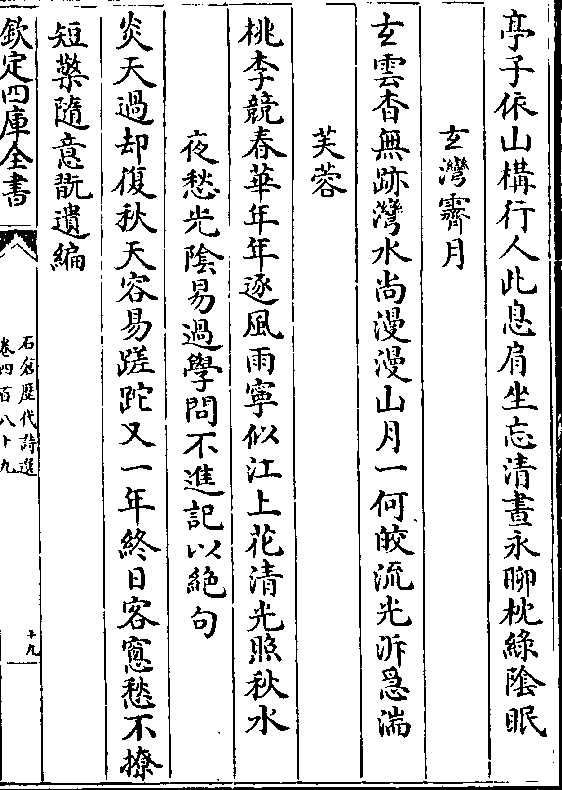 亭子依山構行人此息肩坐忘清晝永聊枕綠陰眠
玄灣霽月
玄雲杳無跡灣水尚漫漫山月一何皎流光泝急湍
芙蓉
桃李競春華年年逐風雨寧似江上花清光照秋水
夜愁光陰易過學問不進記以絶句
炎天過却復秋天容易蹉跎又一年終日客窻愁不撩
短檠隨意翫遺編
欽定四庫全書
石倉歷代詩選
卷四百八十九
十九